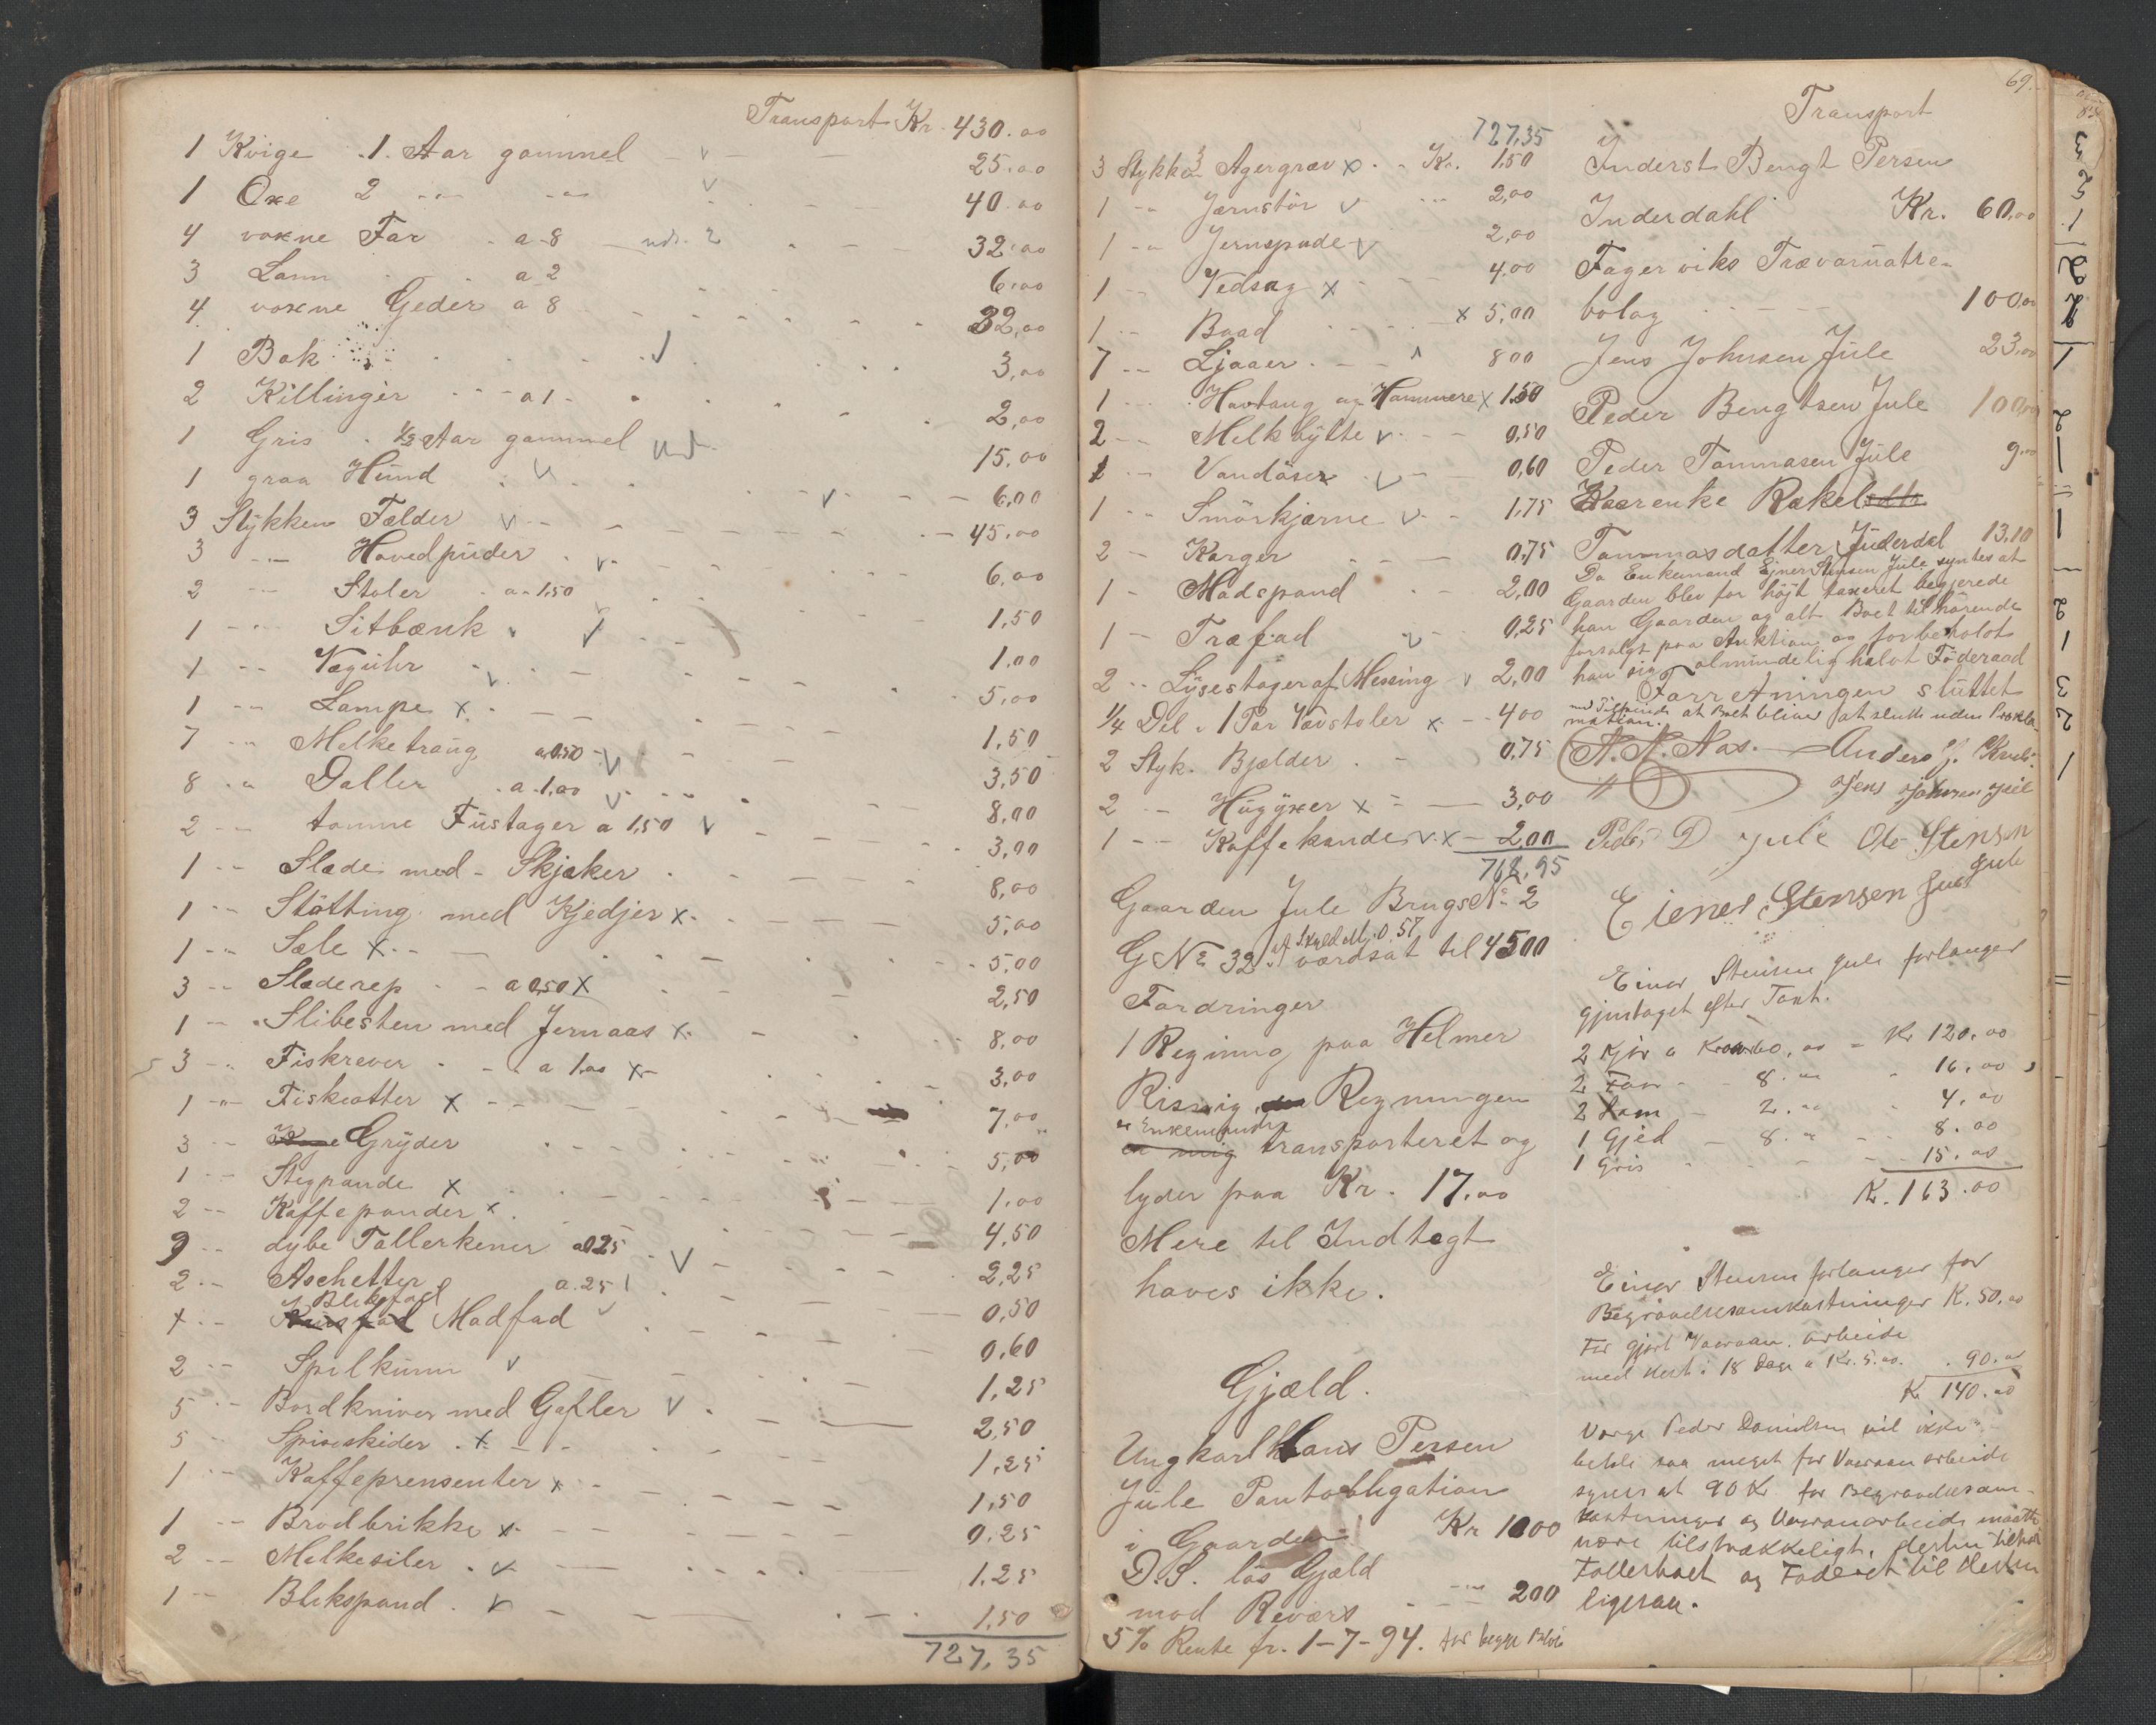 Transport Kr. 430.00
1 Kvige 1 Aar gammel 25.00
1 Oxe 2 -"- -"- 40.00
4 voxne Far a 8 32.00
3 Lam a 2 6.00
4 voxne Geder a 8 32,00
1 Bok 3,00
2 Killinger a 1 2,00
1 Gris 1/2 Aar gammel 15,00
1 graa Hund 6,00
3 Stykken Fælder 45.00
3 -"- Hovedpuder 6.00
2 -"- Stoler a 1,50 1,50
1 -"- Sitbænk 1.00
1 -"- Væguhr 5,00
1 -"- Lampe x 1,50
7 -"- Melketraug a 0.50 3,50
8 -"- Daller a 1.00 8,00
2 -"- tomme Fustager a 1,50 3,00
1 -"- Slæde med Skjæker 8,00
1 -"- Støtting med Kjedjer x 5,00
1 -"- Sæle x 5,00
3 -"- Slæderep a 0,50 x 2,50
1 -"- Slibesten med Jernaas x 8,00
3 -"- Fiskrever a 1.00 x 3,00
1 -"- Fiskeotter x 7,00
3 -"- Gryder 5,00
1 -"- Stegpande x 1.00
2 -"- Kaffepander x 4,50
9 -"- dybe Tallerkener a 025 2,25
2 -"- Aschetter a. 25 0,50
Blikfad
-"- Madfad 0,60
2 -"- Spilkum 1,25
5 -"- Bordkniver med Gafler 2,50
5 -"- Spiseskider x 1,25
1 -"- Kaffeprensenter x 1,50
1 -"- Brødbrikke x 0.25
2 -"- Melkesiler 1.25
1 -"- Blikspand 1,50
727,35
727,35
3 Stykken Agergræv x Kr. 1,50
1 -"- Jærnstør 2,00
1 -"- Jernspade 2,00
1 -"- Vedsag x 4,00
1 -"- Baad x 5,00
7 -"- Ljaaer 800
1 -"- Hovtang og Hammere x 1.50
2 -"- Melkbytte 0,50
1 -"- Vandøser 0,60
1 -"- Smørkjærne 1,75
2 -"- Karger 0,75
1 - Madspand 2,00
1 - Træfad 0,25
2 -"- Lysestager af Messing 2,00
1/4 Del i 1 Par Vævstoler x 400
2 Styk. Bjælder 0,75
2 -"- Hugyxer x 3,00
1 -"- Kaffekander x 2,00
768,95
Gaarden Jule BrugsNo 2
GNo 32 af Skyld M. 0.57 værdsat til 4500
Fordringer
1 Regning paa Helmer
Risvig, Regningen
er Enkemandens
transporteret og
lyder paa Kr. 17.00
Mere til Indtegt
haves ikke.
Gjæld.
Ungkarl Hans Persen
Jule Pantobligation
i Gaarden Kr 1000
D.S. løs Gjæld
mod Revers 200
5% Rente fr. 1-7-94. for begge Beløb
69.
Transport
Inderst Bengt Persen
Inderdahl Kr. 60,00
Fagerviks Trævaruatre-
bolag 100,00
Jens Johnsen Jule 23,00
Peder Bengtsen Jule 100,00
Peder Tommasen Jule 9,00
Rakel
Tommasdatter Inderdal 13,10
Da Enkemand Ejner Stensen Jule syntes at
Gaarden blev for højt taxeret begjerede
han Gaarden og alt Boet tilhørende
forsolgt paa Auktion og forbeholdt
han sig almindelig halvt Föderaad
Forretningen sluttet
med Tilføiende at Boet bliver at slutte uden Prokla-
mation.
N. N. Nas. Anders J.
Jens Johnsen Juel
Peder D Jule Ole Stensen
Jule
Eiener Stensen Jule
Einar Stensen Jule forlanger
gjentaget efter Taxt.
2 Kjør a Kroner 60,00 - Kr 120.00
2 Faar - 8.00 16.00
2 Lam - 2.00 4.00
1 Gjed - 8.00 8.00
1 Gris 15.00
K. 163.00
Einar Stensen forlanger for
Begravelsesomkostninger K. 50.00
For gjort Vaaraan. arbeide
med Hest i 18 Dage a Kr. 5.00. 90.00
K 140.00
Værge Peder Danielsen vil ikke
betale saa meget for Vaaraan arbeide
synes at 90 K for Begravelsesom-
kostninger og Vaaraanarbeide maatte
være tilstrækkeligt. Hesten tilhør
Fællesboet og Foderet til Hesten
ligesaa.